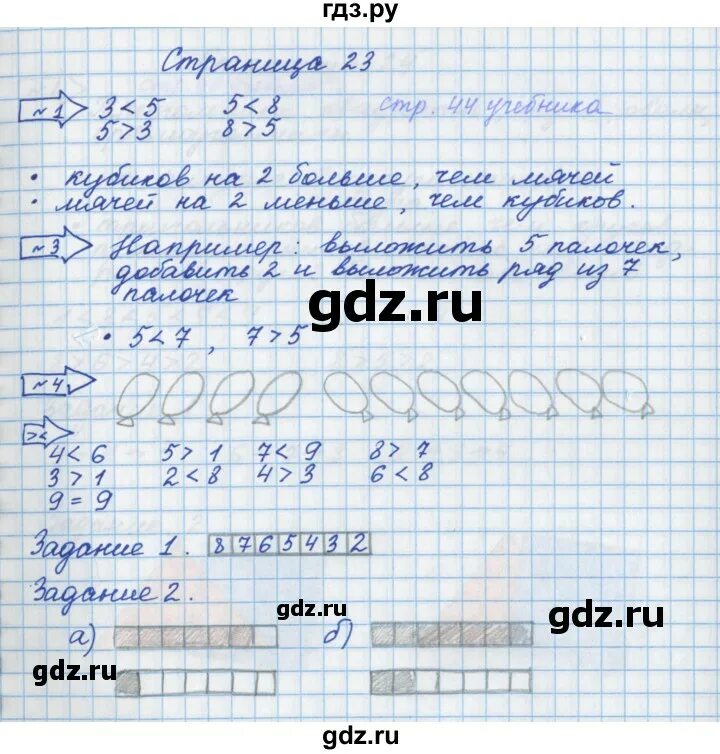 гдз.ру
Страница 23
№1 3 < 5 5 < 8 стр. 44 учебника
5 > 3 8 > 5
• кубиков на 2 больше, чем мячей
• мячей на 2 меньше, чем кубиков.
№3 Например: выложить 5 палочек,
добавить 2 и выложить ряд из 7
палочек
gdz.ru
• 5 < 7, 7 > 5
№4
><
4 < 6 5 > 1 7 < 9 8 > 7
3 > 1 2 < 8 4 > 3 6 < 8
9 = 9
Задание 1. 8 7 6 5 4 3 2
Задание 2.
gdz.ru
gdz.ru
а) б)
gdz.ru
gdz.ru
gdz.ru